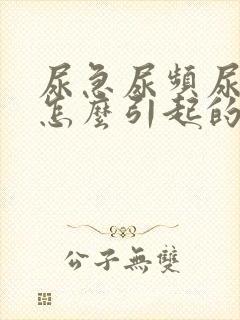 尿急尿頻尿
怎麼引起的
公子無雙